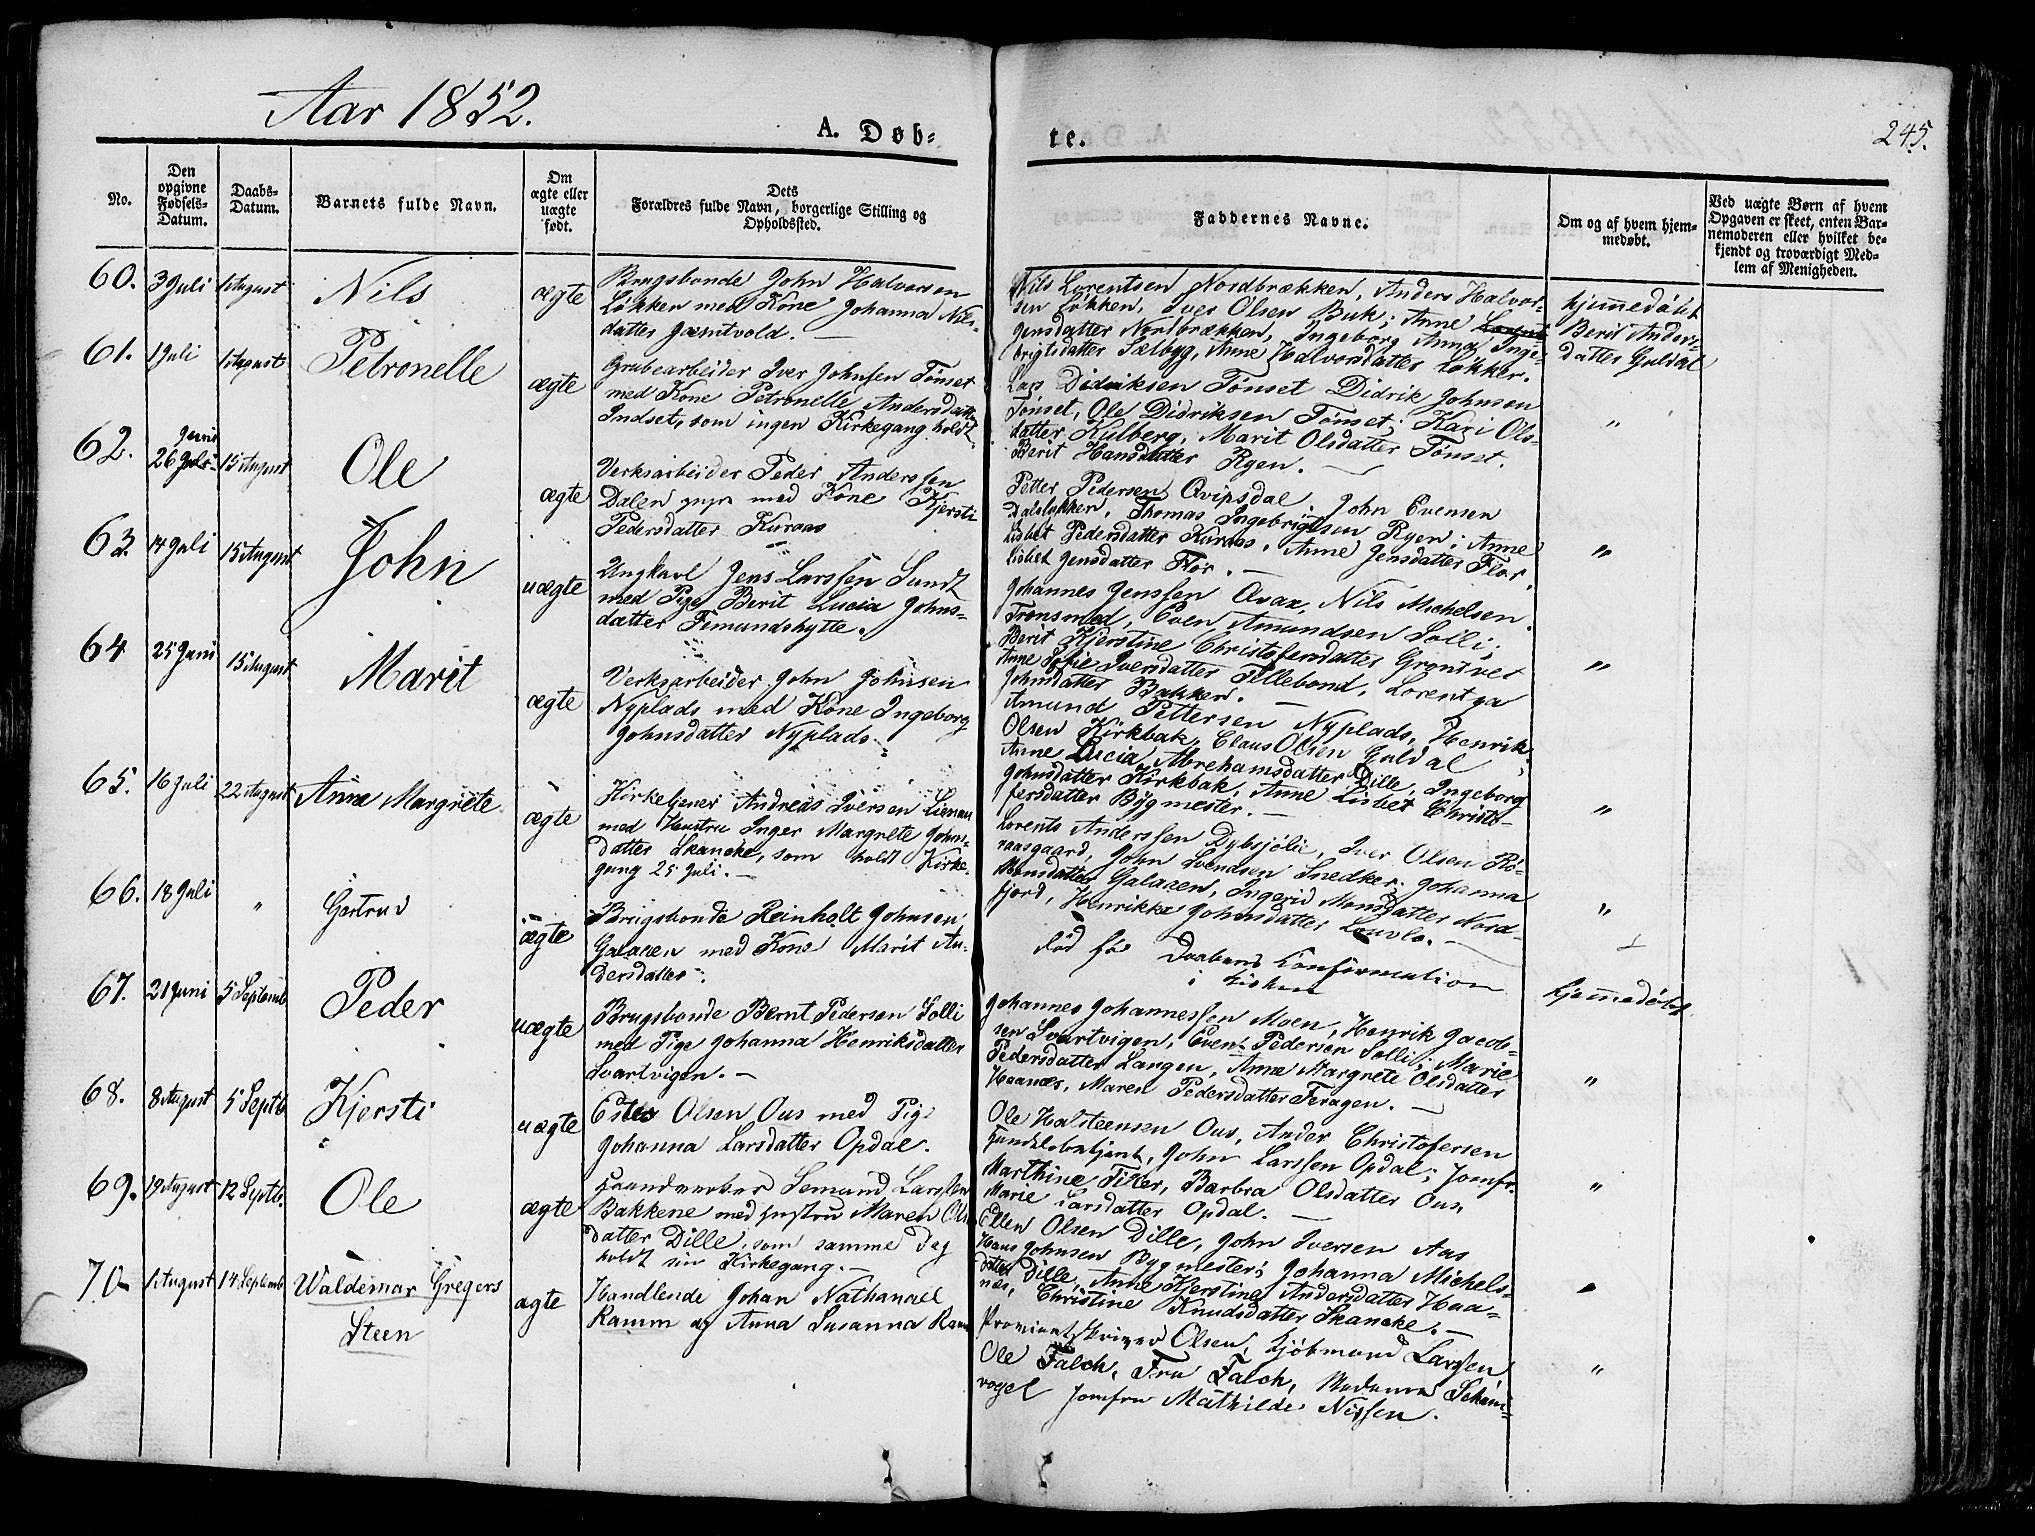 Aar 1852.
A. Døb-
te.
245.
No.
Den opgivne Fødsels-Datum.
Daabs-Datum.
Barnets fulde Navn.
Om ægte eller uægte født.
Dets Forældres fulde Navn, borgerlige Stilling og Opholdssted.
Faddernes Navne.
Om og af hvem hjemmedøbt.
Ved uægte Børn af hvem Opgaven er skeet, enten Barnemoderen eller hvilket bekjendt og troværdigt Medlem af Menigheden.
60. 3 Juli 1 August Nils ægte
Brugsbonde John Halvorsen
Løkken med Kone Johanna Nils-
datter Jamtvold. —
Nils Lorentsen Nordbrækken, Anders Halvor-
sen Løkken, Iver Olsen Buk; Anne
Jensdatter Nordbrækken, Ingeborg Anna Inge-
brigtsdatter Sælbyg, Anne Halvorsdatter Løkken.
hjemmedøbt
Berit Anders-
datter Guldal
61. 1 Juli 1 August Petronelle ægte
Grubearbeider Iver Johnsen Tønset
med Kone Petronelle Andersdatter
Indset, som ingen Kirkegang holdt
Lars Didriksen Tønset Didrik Johnsen
Tønset, Ole Didriksen Tønset; Kari Ols-
datter Kulberg, Marit Olsdatter Tønset.
Berit Hansdatter Ryen. —
"
62. 26 Juni 15 August Ole ægte
Verksarbeider Peder Anderssen
Dalen med Kone Kjersti
Pedersdatter Kuraas
Petter Pedersen Qvipsdal, John Evensen
Dalsløkken, Thomas Ingebrigtsen Ryen; Anne
Lisbet Pedersdatter Kuraas, Anne Jensdatter Flor,
Lisbet Jensdatter Flor. —
"
63. 14 Juli 15 August John uægte
Ungkarl Jens Larssen Sundt
med Pige Berit Lucia Johns-
datter Femundshytte.
Johannes Jenssen Qvax, Nils Michelsen
Tronsmed, Even Amundsen Solli;
Berit Kjerstine Christofersdatter Grøntvet
Anne Sofie Iversdatter Tellebond, Lorentza
Johnsdatter Bakken. —
"
64 25 Juni 15 August Marit ægte
Verksarbeider John Johnsen
Nyplads med Kone Ingeborg
Johnsdatter Nyplads.
Amund Pettersen Nyplads, Henrik
Olsen Kirkbak, Claus Olsen Guldal
Anne Lucia Abrehamsdatter Dille, Ingeborg
Johnsdatter Kirkbak, Anne Lisbet Christo-
fersdatter Bygmester. —
"
65. 16 Juli 22 August Anne Margrete ægte
Kirketjener Andreas Iversen Lienau
med Hustru Inger Margrete Johns-
datter Skancke, som holdt Kirke-
gang 25 Juli. —
Lorents Anderssen Dybsjølie, Iver Olsen Rø-
raasgaard, John Svendsen Snedker; Johanna
Monsdatter Galaaen, Ingerid Monsdatter Nord-
fjord, Henrikke Johnsdatter
"
66. 18 Juli " Gertrud ægte
Brugsbonde Reinholt Johnsen
Galaaen med Kone Marit An-
dersdatter.
død før Daabens Confirmation
i Kirken
67. 21 Juni 5 Septemb. Peder uægte
Brugsbonde Bernt Pedersen Solli
med Pige Johanna Henriksdatter
Svartvigen. —
Johannes Johannessen Moen, Henrik Jacob-
sen Svartvigen, Even Pedersen Solli; Marie
Pedersdatter Langen, Anne Margrete Olsdatter
Haanæs, Maren Pedersdatter Feragen. —
hjemmedøbt
"
68. 8 August 5 Septb. Kjersti uægte
Olsen Ous med Pige
Johanna Larsdatter Opdal.
Ole Halsteensen Ous, Ander Christofersen
John Larssen Opdal; Jomfr.
Marthine Filler, Barbra Olsdatter Ous,
Marie Larsdatter Opdal. —
"
69. 19 August 12 Septb. Ole ægte
Haandverker Semund Larssen
Bakkene med Hustru Maren Ols
datter Dille, som samme Dag
holdt sin Kirkegang. —
Ellen Olsen Dille, John Iversen Aas
Hans Johnsen Bygmester; Johanna Michels-
datter Dille, Anne Kjerstine Andersdatter Haa-
næs, Christine Knudsdatter Skancke. —
"
70 1 August 14 Septemb. Waldemar Gregers
Steen
ægte
Handlende Johan Nathanael
Ramm og Anna Susanna Ramm
Proviantskriver Olsen, Kjøbmand Larssen,
Ole Falch, Fru Falch, Madame Scham-
vogel Jomfru Mathilde Nissen.
"